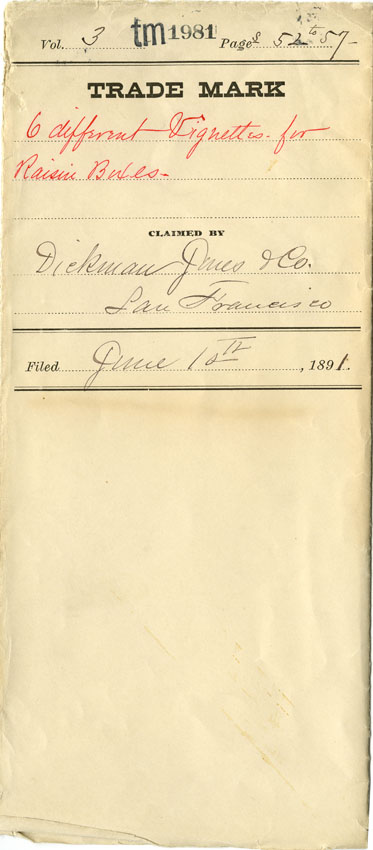 Vol. 3 tm 1981 Pages 52 to 57
TRADE MARK
6 different Vignettes for
Raisin Boxes
CLAIMED BY
Dickman Jones & Co.
San Francisco
Filed June th, 1891.